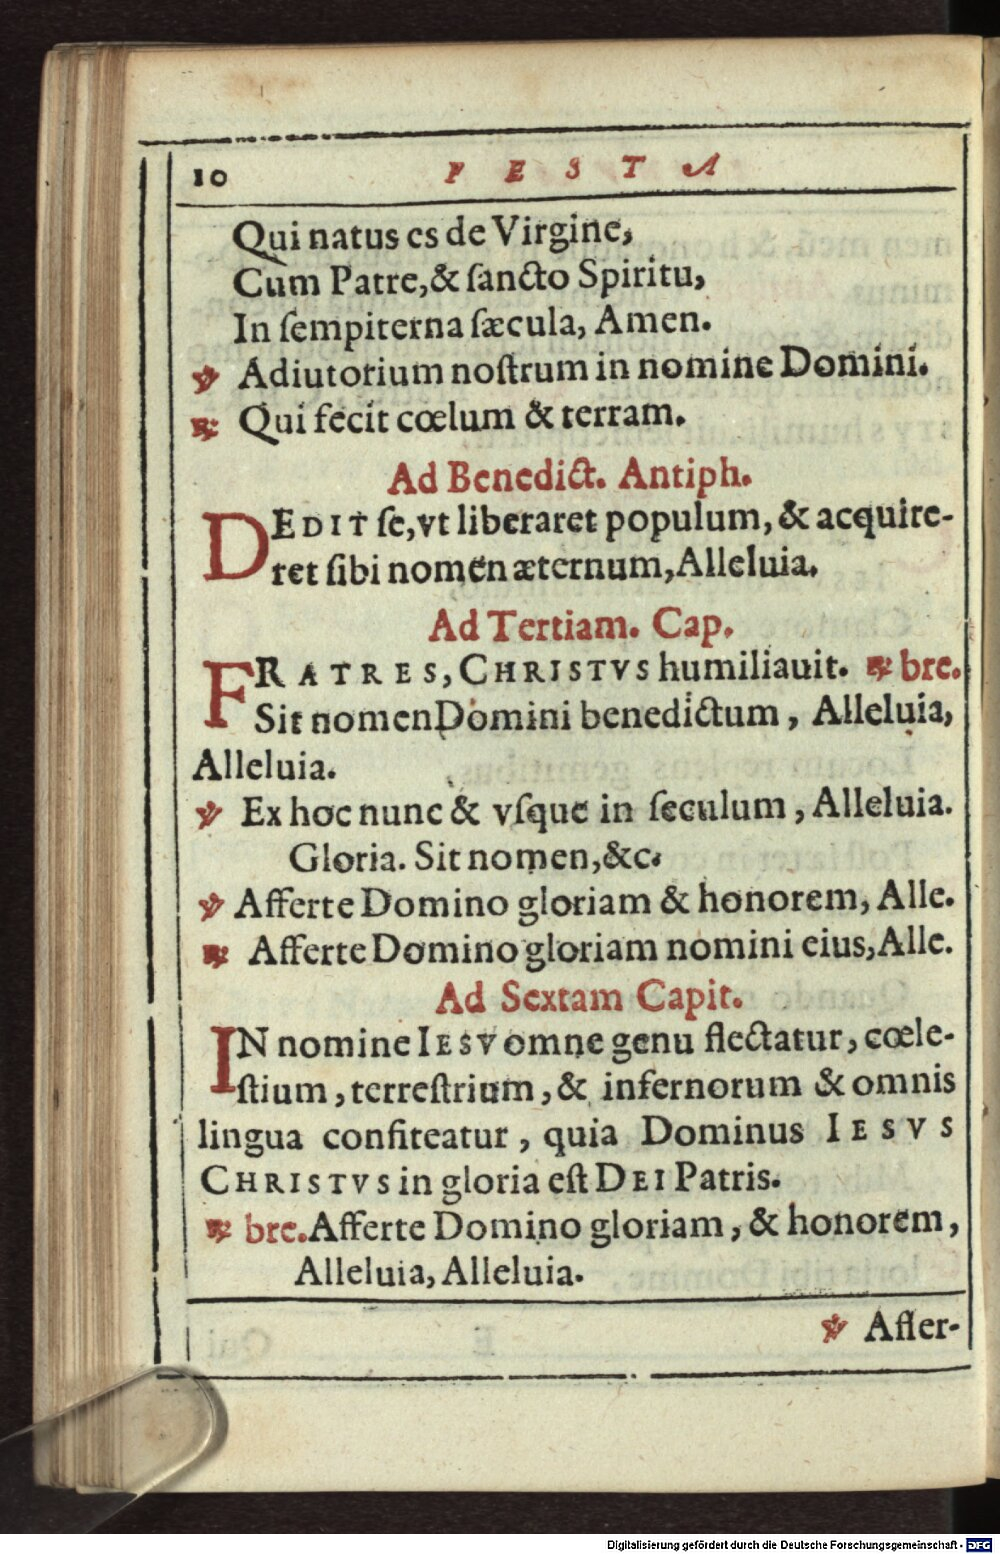 10 FESTA
Qui natus es de Virgine,
Cum Patre, & ſancto Spiritu,
In ſempiterna ſæcula, Amen.
℣ Adiutorium noſtrum in nomine Domini.
℟ Qui fecit cœlum & terram.
Ad Benedict. Antiph.
DEDIT ſe, vt liberaret populum, & acquire-
ret ſibi nomen æternum, Alleluia.
Ad Tertiam. Cap.
FRATRES, CHRISTVS humiliauit. ℟ bre.
Sit nomen Domini benedictum, Alleluia,
Alleluia.
℣ Ex hoc nunc & vſque in ſeculum, Alleluia.
Gloria. Sit nomen, &c.
℣ Afferte Domino gloriam & honorem, Alle.
℟ Afferte Domino gloriam nomini eius, Alle.
Ad Sextam Capit.
IN nomine IESV omne genu flectatur, cœle-
ſtium, terreſtrium, & infernorum & omnis
lingua confiteatur, quia Dominus IESVS
CHRISTVS in gloria eſt DEI Patris.
℟ bre. Afferte Domino gloriam, & honorem,
Alleluia, Alleluia.
℣ Affer-
Digitalisierung gefördert durch die Deutsche Forschungsgemeinschaft - DFG